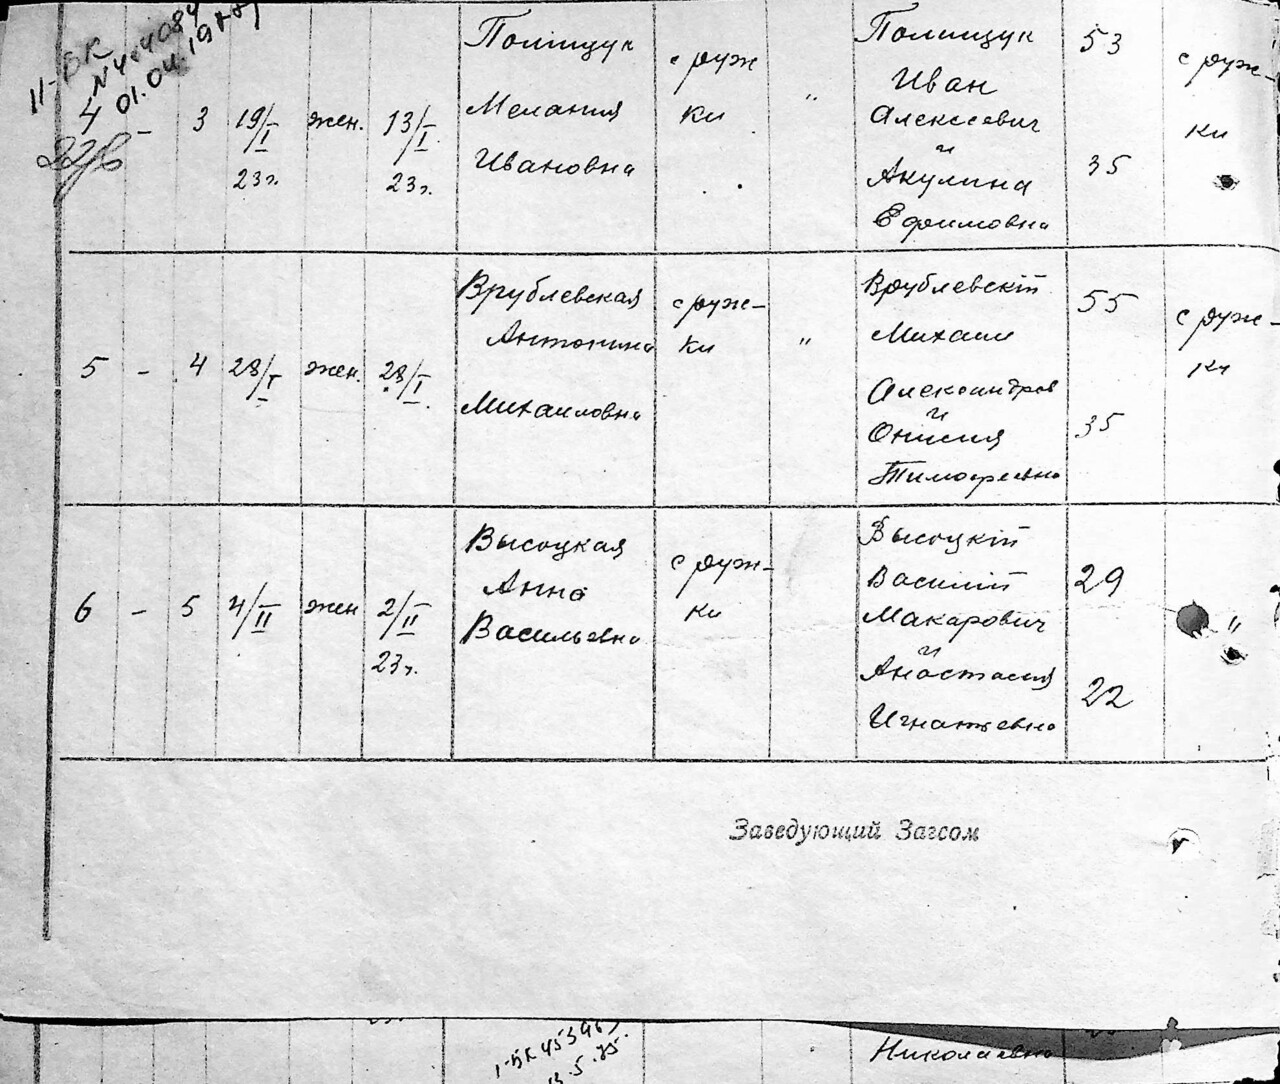 II-БК
01.04.19
4 - 3 19/I 23г. жен. 13/I 23г.
Полищук Мелания Ивановна
с Руж ки
"
Полищук Иван Алексеевич и Акулина Ефимовна
53
35
с Руж- ки
5 - 4 28/I жен. 28/I
Врублевская Антонина Михаиловна
с Руж- ки
"
Врублевскій Михаил Александров и Онисия Тимофеевна
55
35
с Руж- ки
6 - 5 4/II жен 2/II 23г.
Высоцкая Анна Васильевна
с Руж- ки
Высоцкій Василій Макарович и Анастасия Игнатьевна
29
22
"
Заведующий Загсом
Николаевна